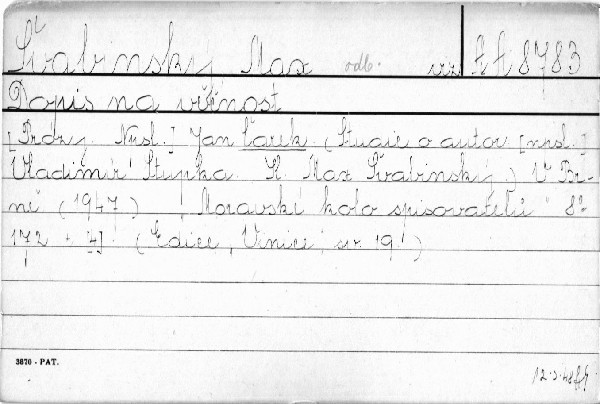 Švabinský Max odb. viz tt 8783
Dopis na věčnost
[Prózy. Nusl.] Jan Čarek. (Studie o autor. [nusl.]
Vladimír Stupka. K. Max Švabinský.) V Br-
ně (1947) „Moravské kolo spisovatelů" 8°
172 + 4]. (Edice „Vinice" sv. 19.)
3870 - PAT.
12.5.48